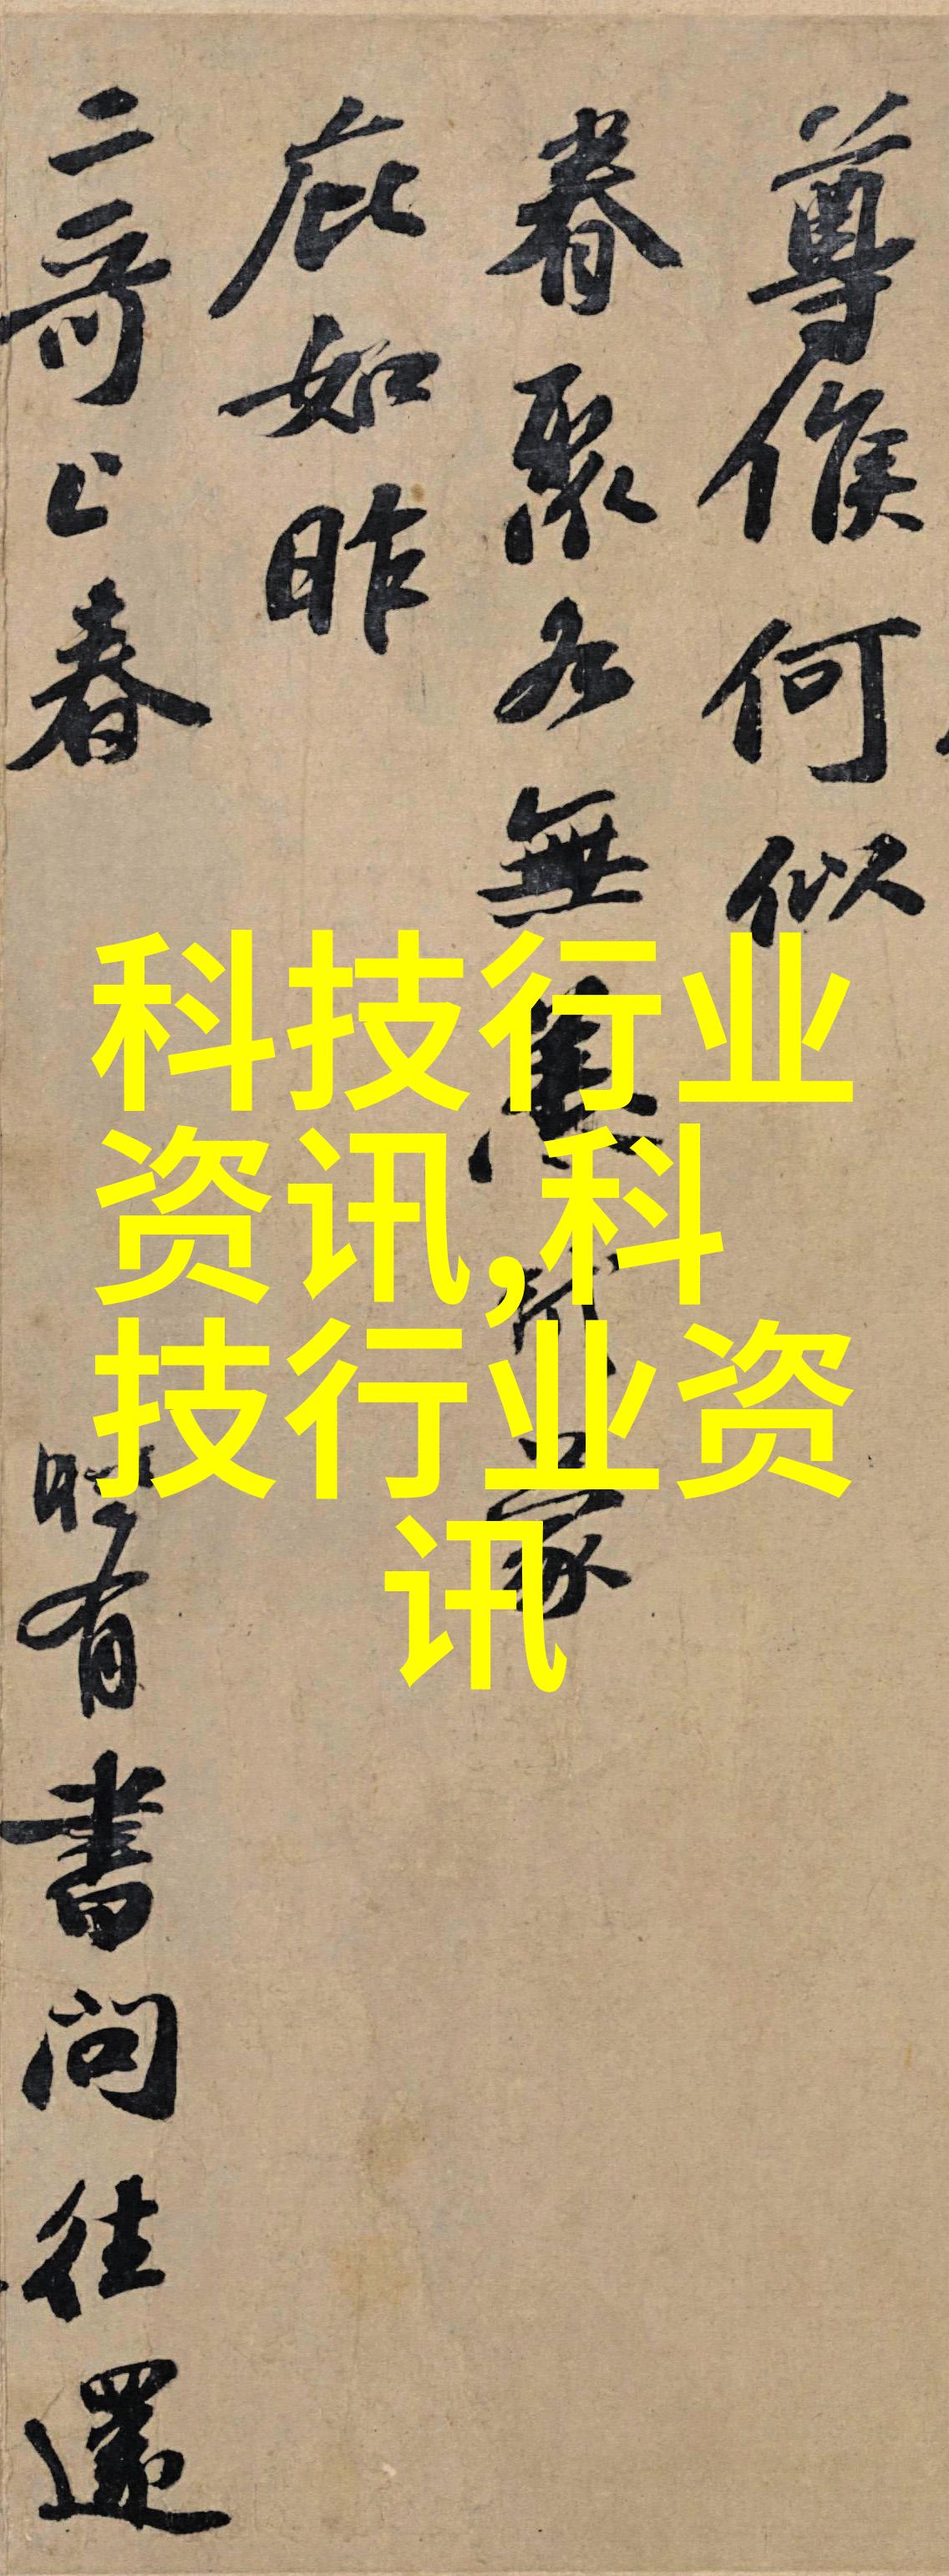 尊候何似
眷聚各無恙蒙
庇如昨
二哥上春時有書問往還
科技行业
资讯,科
技行业资
讯